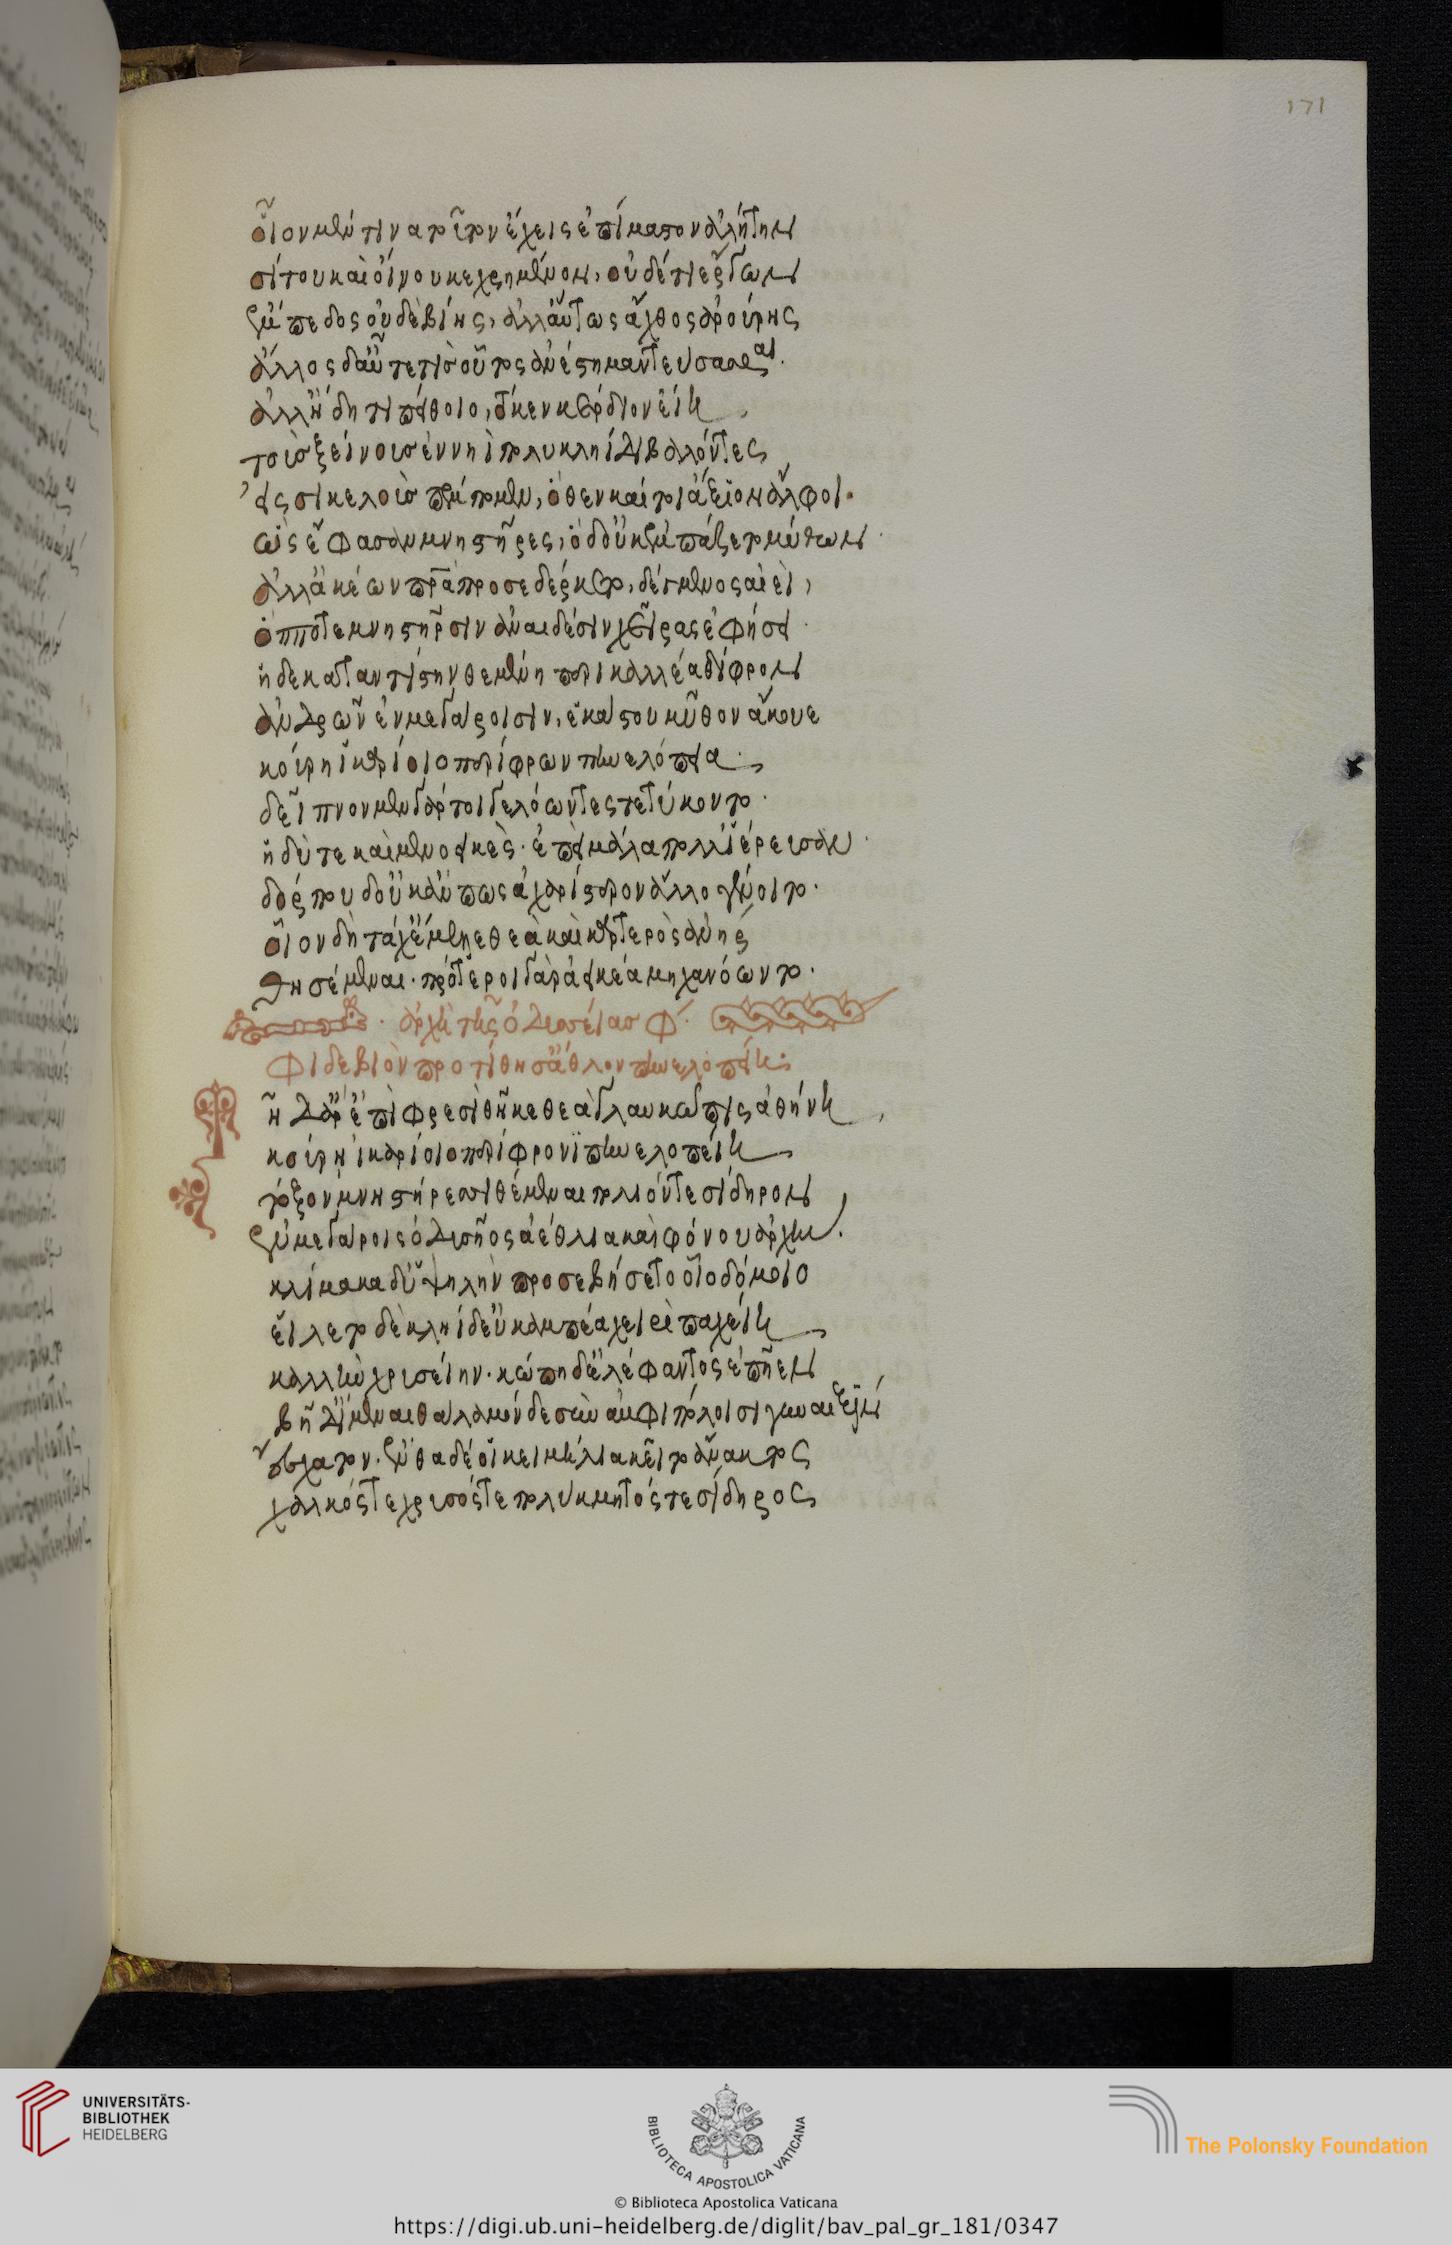 171
οἷον μέν τινα τοῦτον ἔχεις ἐπίμαστον ἀλήτην
σίτου καὶ οἴνου κεχρημένον, οὐδέ τι ἔργων
ἔμπεδος οὐδὲ βίης, ἀλλ' αὔτως ἄχθος ἀρούρης
ἄλλος δ' αὖτέ τις οὗτος ἀνέστη μαντεύσασθαι.
ἀλλ' ἤ δή τι πίθοιο, τό κεν κέρδιον εἴη
τοὺς ξείνους ἐν νηῒ πολυκληίδι βαλόντες
ἐς σικελοὺς πέμπωμεν, ὅθεν καί τοι ἄξιον ἄλφοι.
ὣς ἔφασαν μνηστῆρες, ὁ δ' οὐκ ἐμπάζετο μύθων
ἀλλ' ἀκέων πατέρα προσεδέρκετο, δέγμενος αἰεὶ,
ὁππότε μνηστῆρσιν ἀναιδέσιν χεῖρας ἐφήσει
ἡ δὲ κατ' ἄντηστιν θεμένη περικαλλέα δίφρον
ἀνδρῶν ἐν μεγάροισιν, ἑκάστου μῦθον ἄκουε
κούρη ἰκαρίοιο περίφρων πηνελόπεια.
δεῖπνον μὲν γάρ τοι γελόωντες τετύκοντο.
ἡδύ τε καὶ μενοεικὲς. ἐπεὶ μάλα πόλλ' ἱέρευσαν.
δόρπου δ' οὐκ ἄν πως ἀχαρίστερον ἄλλο γένοιτο.
οἷον δὴ τάχ' ἔμελλε θεὰ καὶ καρτερὸς ἀνὴρ
θησέμεναι. πρότεροι γὰρ ἀεικέα μηχανόωντο.
ἀρχὴ τῆς ὀδυσσείας Φ.
Φῖ δὲ βιὸν προτίθησ' ἄθλον πηνελόπεια.
τῇ δ' ἄρ' ἐπὶ φρεσὶ θῆκε θεὰ γλαυκῶπις ἀθήνη
κούρῃ ἰκαρίοιο περίφρονι πηνελοπείῃ
τόξον μνηστήρεσσι θέμεναι πολιόν τε σίδηρον
ἐν μεγάροις ὀδυσῆος ἀέθλια καὶ φόνου ἀρχήν.
κλίμακα δ' ὑψηλὴν προσεβήσετο οἷο δόμοιο
εἵλετο δὲ κληίδ' εὐκαμπέα χειρὶ παχείῃ
καλὴν χρυσείην. κώπη δ' ἐλέφαντος ἐπῆεν
βῆ δ' ἴμεναι θάλαμόνδε σὺν ἀμφιπόλοισι γυναιξὶν
ἔσχατον. ἔνθα δέ οἱ κειμήλια κεῖτο ἄνακτος
χαλκός τε χρυσός τε πολύκμητός τε σίδηρος
UNIVERSITÄTS-
BIBLIOTHEK
HEIDELBERG
BIBLIOTECA APOSTOLICA VATICANA
The Polonsky Foundation
© Biblioteca Apostolica Vaticana
https://digi.ub.uni-heidelberg.de/diglit/bav_pal_gr_181/0347